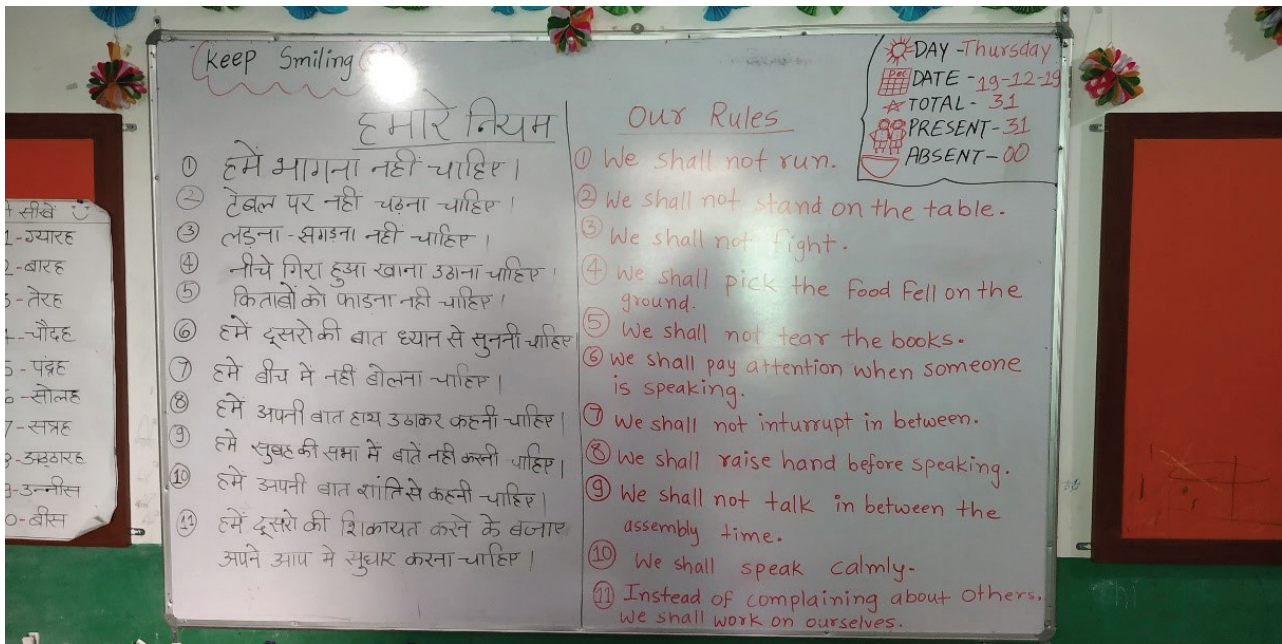 Keep Smiling
DAY - Thursday
DEC
DATE - 19-12-19
TOTAL - 31
PRESENT - 31
ABSENT - 00
हमारे नियम
① हमें भागना नहीं चाहिए।
② टेबल पर नहीं चढ़ना चाहिए।
③ लड़ना - झगडना नहीं चाहिए।
④ नीचे गिरा हुआ खाना उठाना चाहिए।
⑤ किताबों को फाडना नही चाहिए।
⑥ हमें दूसरो की बात ध्यान से सुननी चाहिए
⑦ हमे बीच मे नही बोलना चाहिए।
⑧ हमें अपनी बात हाथ उठाकर कहनी चाहिए।
⑨ हमे सुबह की सभा में बातें नही करनी चाहिए।
⑩ हमें अपनी बात शांति से कहनी चाहिए।
⑪ हमें दूसरो की शिकायत करने के बजाए
अपने आप मे सुधार करना चाहिए।
Our Rules
① We shall not run.
② We shall not stand on the table.
③ We shall not fight.
④ We shall pick the food fell on the
ground.
⑤ We shall not tear the books.
⑥ We shall pay attention when someone
is speaking.
⑦ We shall not inturrupt in between.
⑧ We shall raise hand before speaking.
⑨ We shall not talk in between the
assembly time.
⑩ We shall speak calmly.
⑪ Instead of complaining about others,
we shall work on ourselves.
सीखें
1 - ग्यारह
2 - बारह
3 - तेरह
4 - चौदह
5 - पंद्रह
6 - सोलह
7 - सत्रह
8 - अठ्ठारह
9 - उन्नीस
0 - बीस